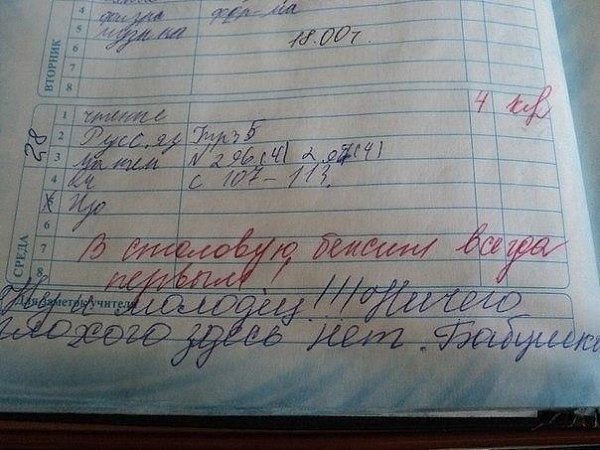 4 физра физ-ма
5 музыка
18.00 г.
6
7
8
ВТОРНИК
28
1 чтение 4
2 Русс.яз Упр 5
3 N 296(4) 297(4)
4 с 107-113.
5 Изо
6
7 В столовую бежит всегда
8 первым
СРЕДА
Для заметок учителя
Ну и молодец!!! Ничего
плохого здесь нет. Бабушка